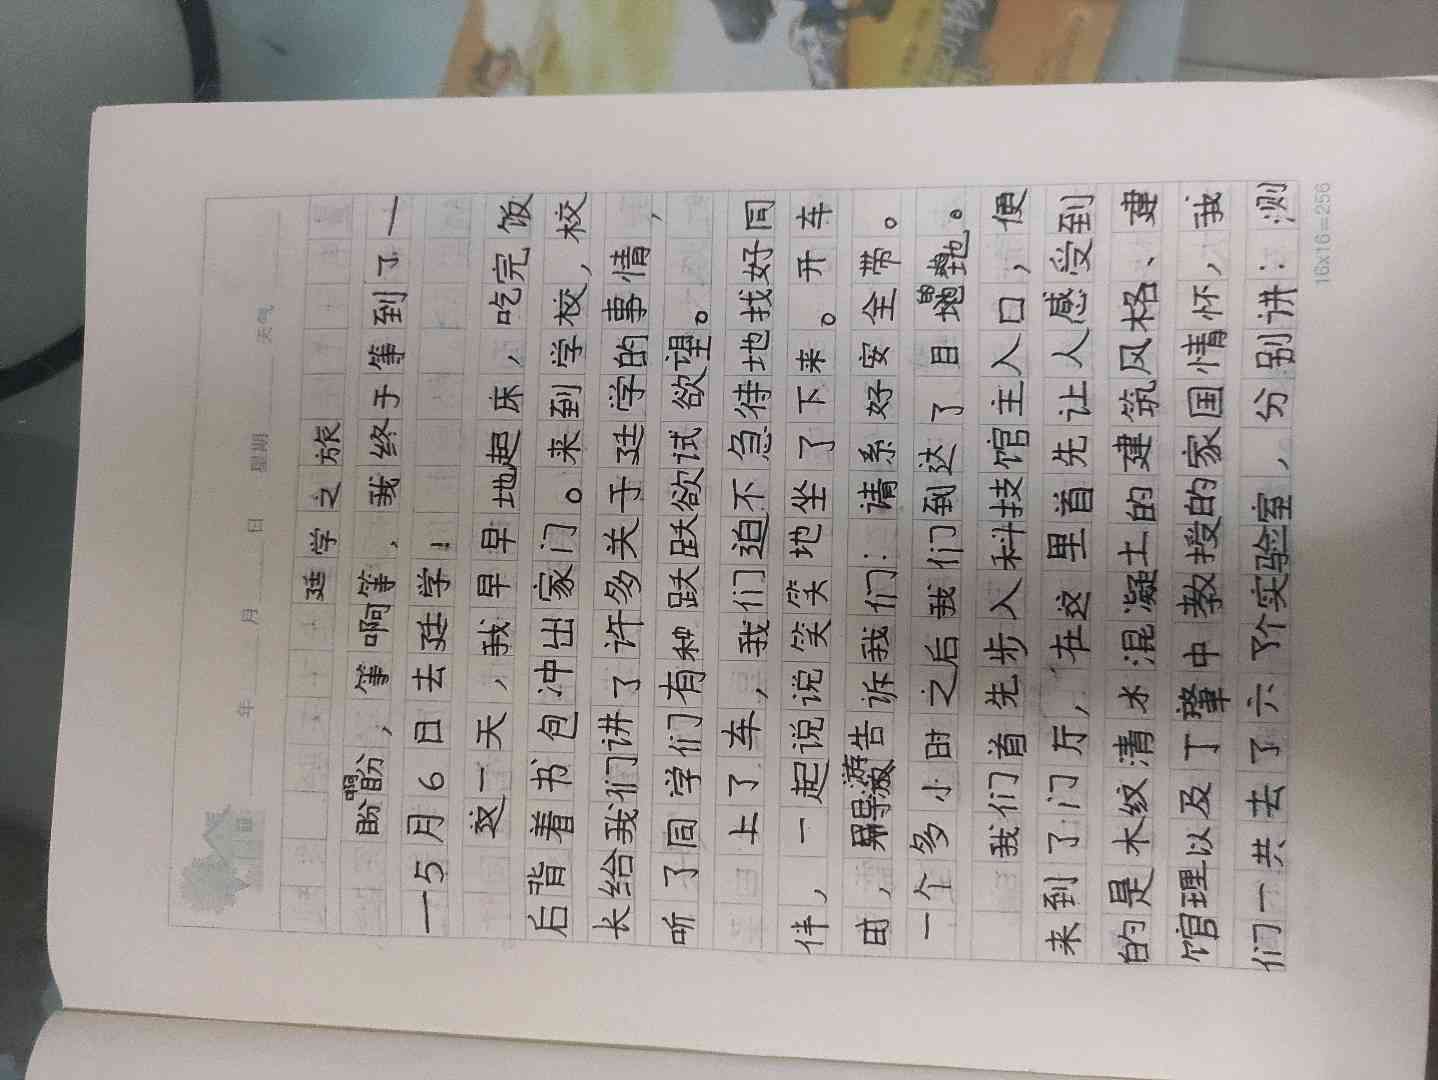 年 月 日 星期 天气
廷学之旅
盼啊盼,等啊等,我终于等到了一
一5月6日去廷学!
这一天,我早早地起床,吃完饭
后背着书包冲出家门。来到学校,校
长给我们讲了许多关于廷学的事情,
听了同学们有种跃跃欲试欲望。
上了车,我们迫不急待地找好同
伴,一起说说笑笑地坐了下来。开车
时,导游告诉我们:请系好安全带。
一个多小时之后我们到达了目的地。
我们首先步入科技馆主入口,便
来到了门厅,在这里首先让人感受到
的是木纹清水混凝土的建筑风格、建
馆理以及丁肇中教授的家国情怀,我
们一共去了六个实验室,分别讲:测
16x16=256